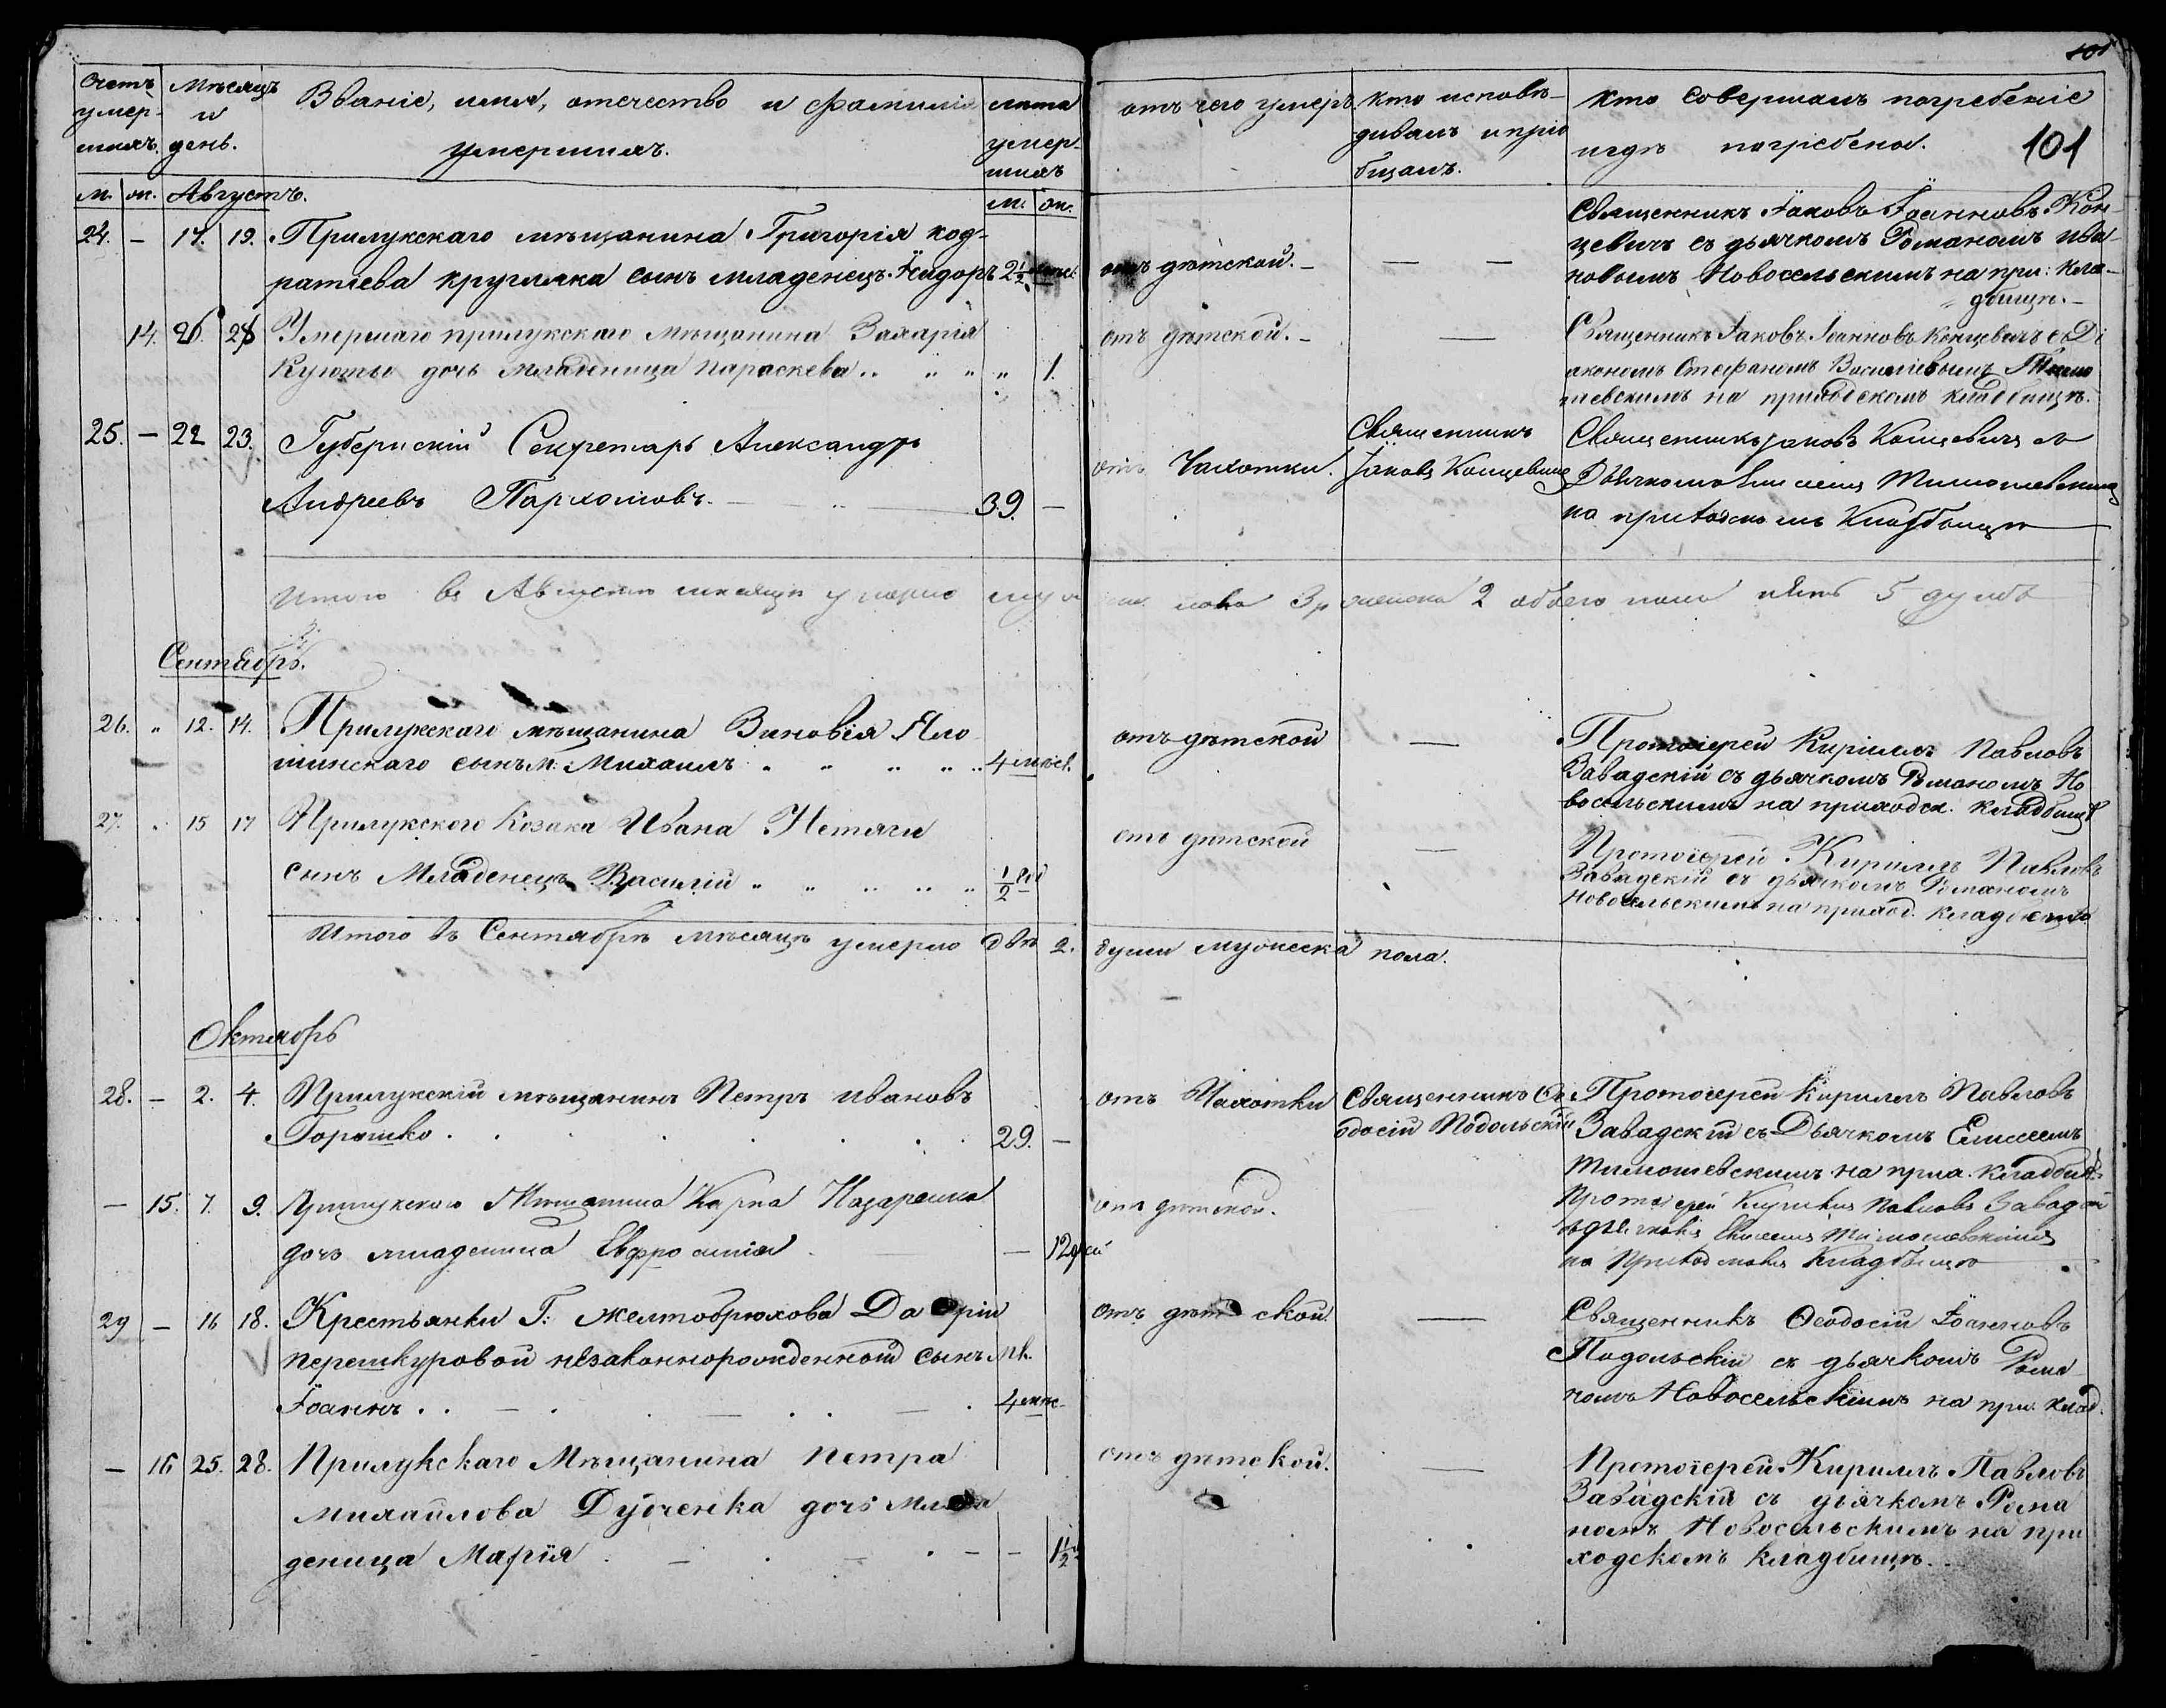 101
Счетъ умер- шихъ.
Мѣсяцъ и день.
Званіе, имя, отечество и фамилія умершихъ.
лѣта умер- шихъ
отъ чего умеръ
кто исповѣ- дывалъ и прі- бщалъ.
кто совершалъ погребеніе и гдѣ погребены.
101
м. ж. Августъ. м. ж.
24. — 17. 19. Прилукскаго мѣщанина Григорія код-
ратіева кругляка сынъ младенецъ Ісидоръ 2½
отъ дѣтской. — — —
Священникъ Іаковъ Іоанновъ Кон-
цевичъ съ дьячкомъ Романомъ Ива-
новымъ Новосельскимъ на при: кла-
дбищѣ. —
14. 26. 28 Умершаго прилукскаго мѣщанина Захарія
дочь младеница Параскева „ „ „ „ 1.
отъ дѣтской. — —
Священникъ Іаковъ Іоанновъ Концевичъ съ Ді
акономъ Стефаномъ Василіевымъ
на приходскомъ кладбищѣ.
25. — 22 23. Губернскій Секретарь Александръ
Андреевъ Пархомовъ. — 39. —
отъ Чахотки.
Священникъ
Іаковъ Концевичъ
Священникъ Іаковъ Концевичъ съ
Дьячкомъ Тимошевскимъ
на приходскомъ Кладбищѣ
Итого въ Августѣ мѣсяцѣ умерло муж. пола 3, женска 2 обоего пола пять 5 душъ
Сентябрь.
26. „ 12. 14. Прилукскаго мѣщанина Зиновія Яло
шинскаго сынъ м: Михаилъ „ „ „ „ „ 4 мѣся.
отъ дѣтской —
Протоіерей Кириллъ Павловъ
Завадскій съ дьячкомъ Романомъ Но
восельскимъ на приходск. кладбищѣ
27. „ 15 17 Прилукского Козака Ивана Нетяги
сынъ Младенецъ Василій „ „ „ „ „ ½
отъ дѣтской —
Протоіерей Кириллъ Павловъ
Завадскій съ дьячкомъ Романомъ
Новосельскимъ на приход. кладбищѣ
Итого въ Сентябрѣ мѣсяцѣ умерло двѣ 2. души мужеска пола.
Октябрь
28. — 2. 4. Прилукскій мѣщанинъ Петръ Ивановъ
Горошко . . . . . . . 29. —
отъ Чахотки
Священникъ Ѳе
одосій Подольскій
Протоіерей Кириллъ Павловъ
Завадскій съ Дьячкомъ Елисеемъ
Тимошевскимъ на прих. кладбищѣ
— 15. 7. 9. Прилукского Мѣщанина Карпа Назаренка
дочь младеница Евфросинія — 12 дней
отъ дѣтской.
Протоіерей Кириллъ Павловъ Завадскій
съ дьячкомъ Елисеемъ Тимошевскимъ
на Приходскомъ Кладбищѣ
29 — 16 18. Крестьянки Г: Желтобрюхова Даріи
перешкуровой незаконнорожденной сынъ мл.
Іоаннъ . . — . . — . . — . 4 мѣс.
отъ дѣтской. —
Священникъ Ѳеодосій Іоанновъ
Подольскій съ дьячкомъ Рома
номъ Новосельскимъ на при. клад.
— 16 25. 28. Прилукскаго Мѣщанина Петра
Михайлова Дубченка дочь мла
деница Марія . — . — . — — 1½
отъ дѣтской. —
Протоіерей Кириллъ Павловъ
Завадскій съ дьячкомъ Рома
номъ Новосельскимъ на при
ходскомъ кладбищѣ.